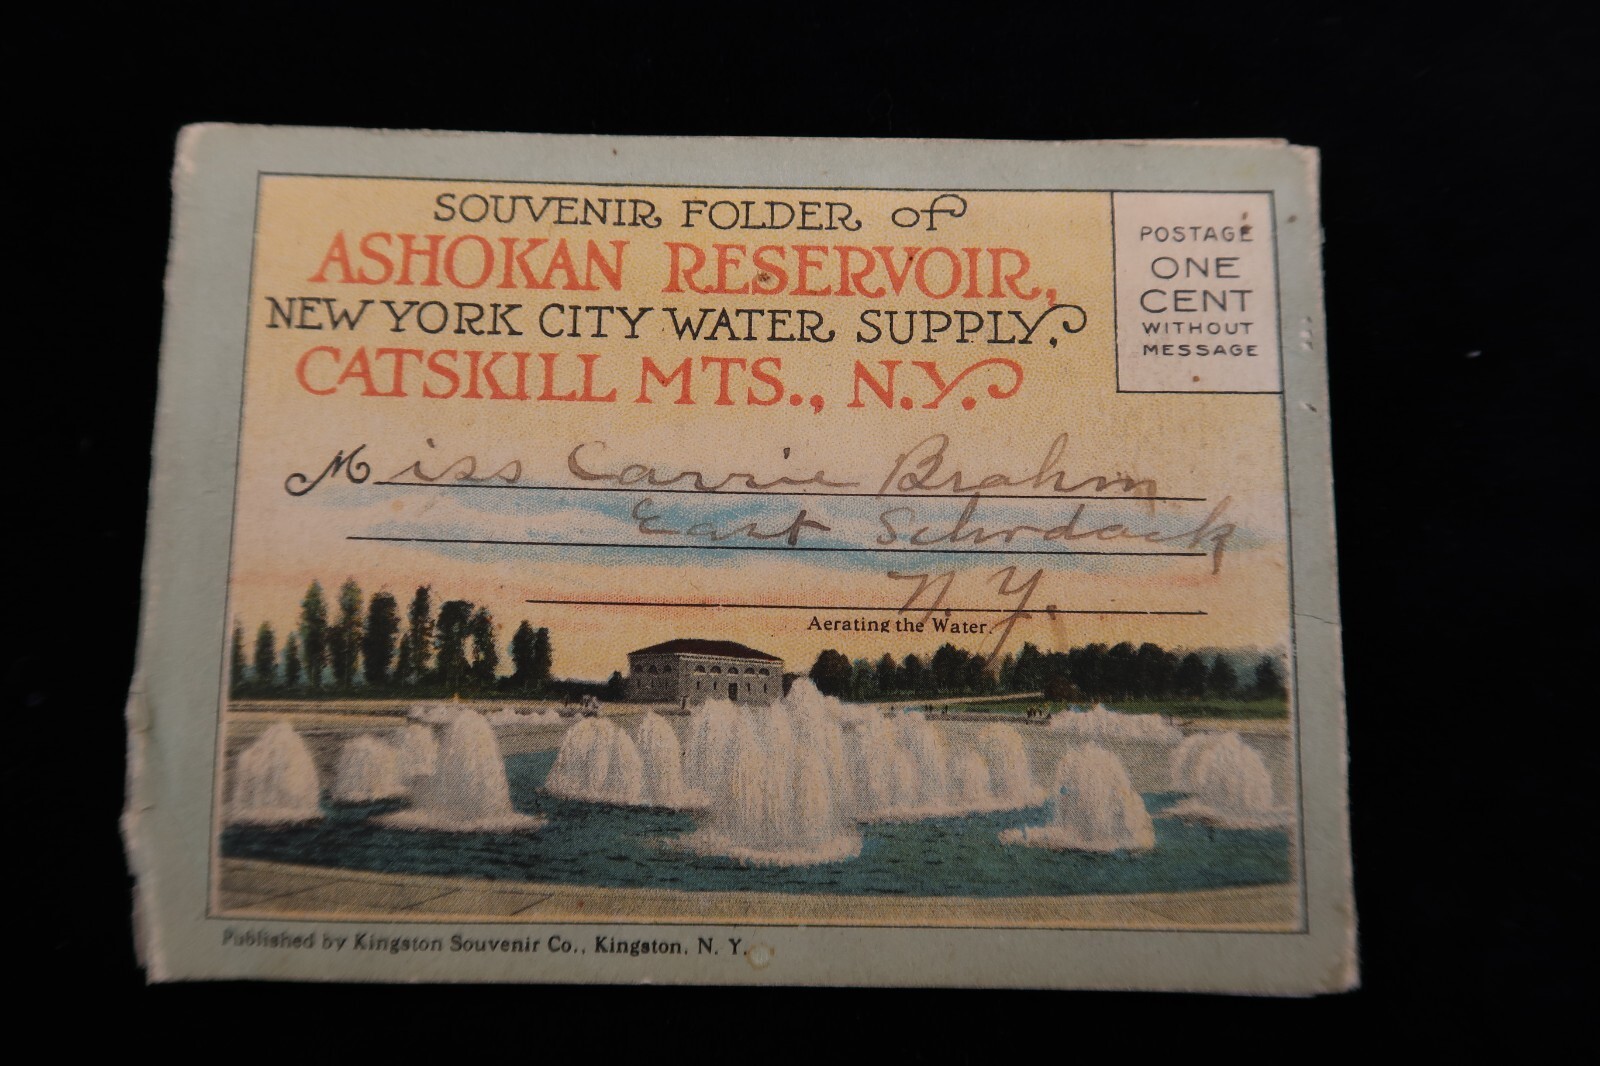 SOUVENIR FOLDER of
ASHOKAN RESERVOIR,
NEW YORK CITY WATER SUPPLY.
CATSKILL MTS., N.Y.
POSTAGE
ONE
CENT
WITHOUT
MESSAGE
Miss Carrie Brahm
East Schodack
N. Y.
Aerating the Water.
Published by Kingston Souvenir Co., Kingston, N. Y.